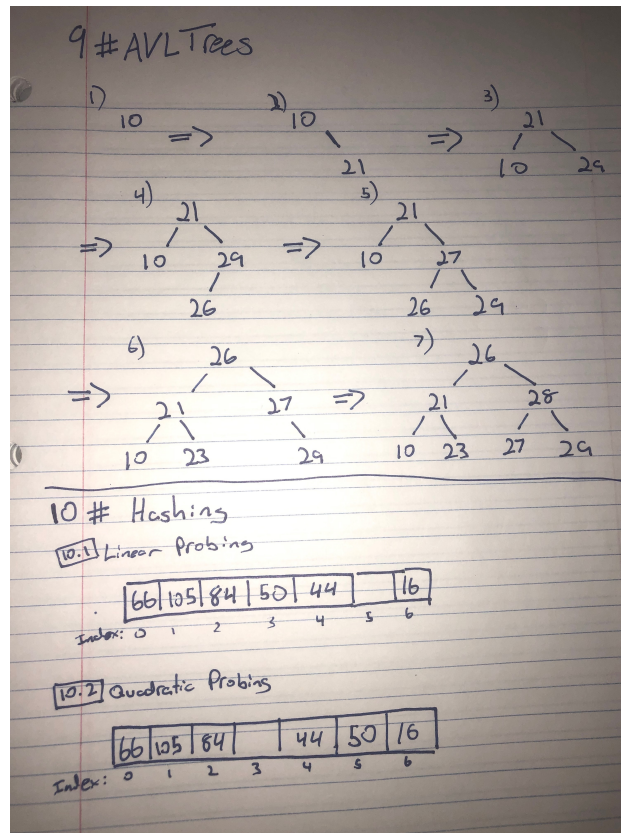 9 # AVL Trees
1) 2) 3)
10 => 10 => 21
21 10 29
4) 5)
21 21
=> 10 29 => 10 27
26 26 29
6) 7)
26 26
=> 21 27 => 21 28
10 23 29 10 23 27 29
10 # Hashing
10.1 Linear Probing
66 105 84 50 44 16
Index: 0 1 2 3 4 5 6
10.2 Quadratic Probing
66 105 84 44 50 16
Index: 0 1 2 3 4 5 6